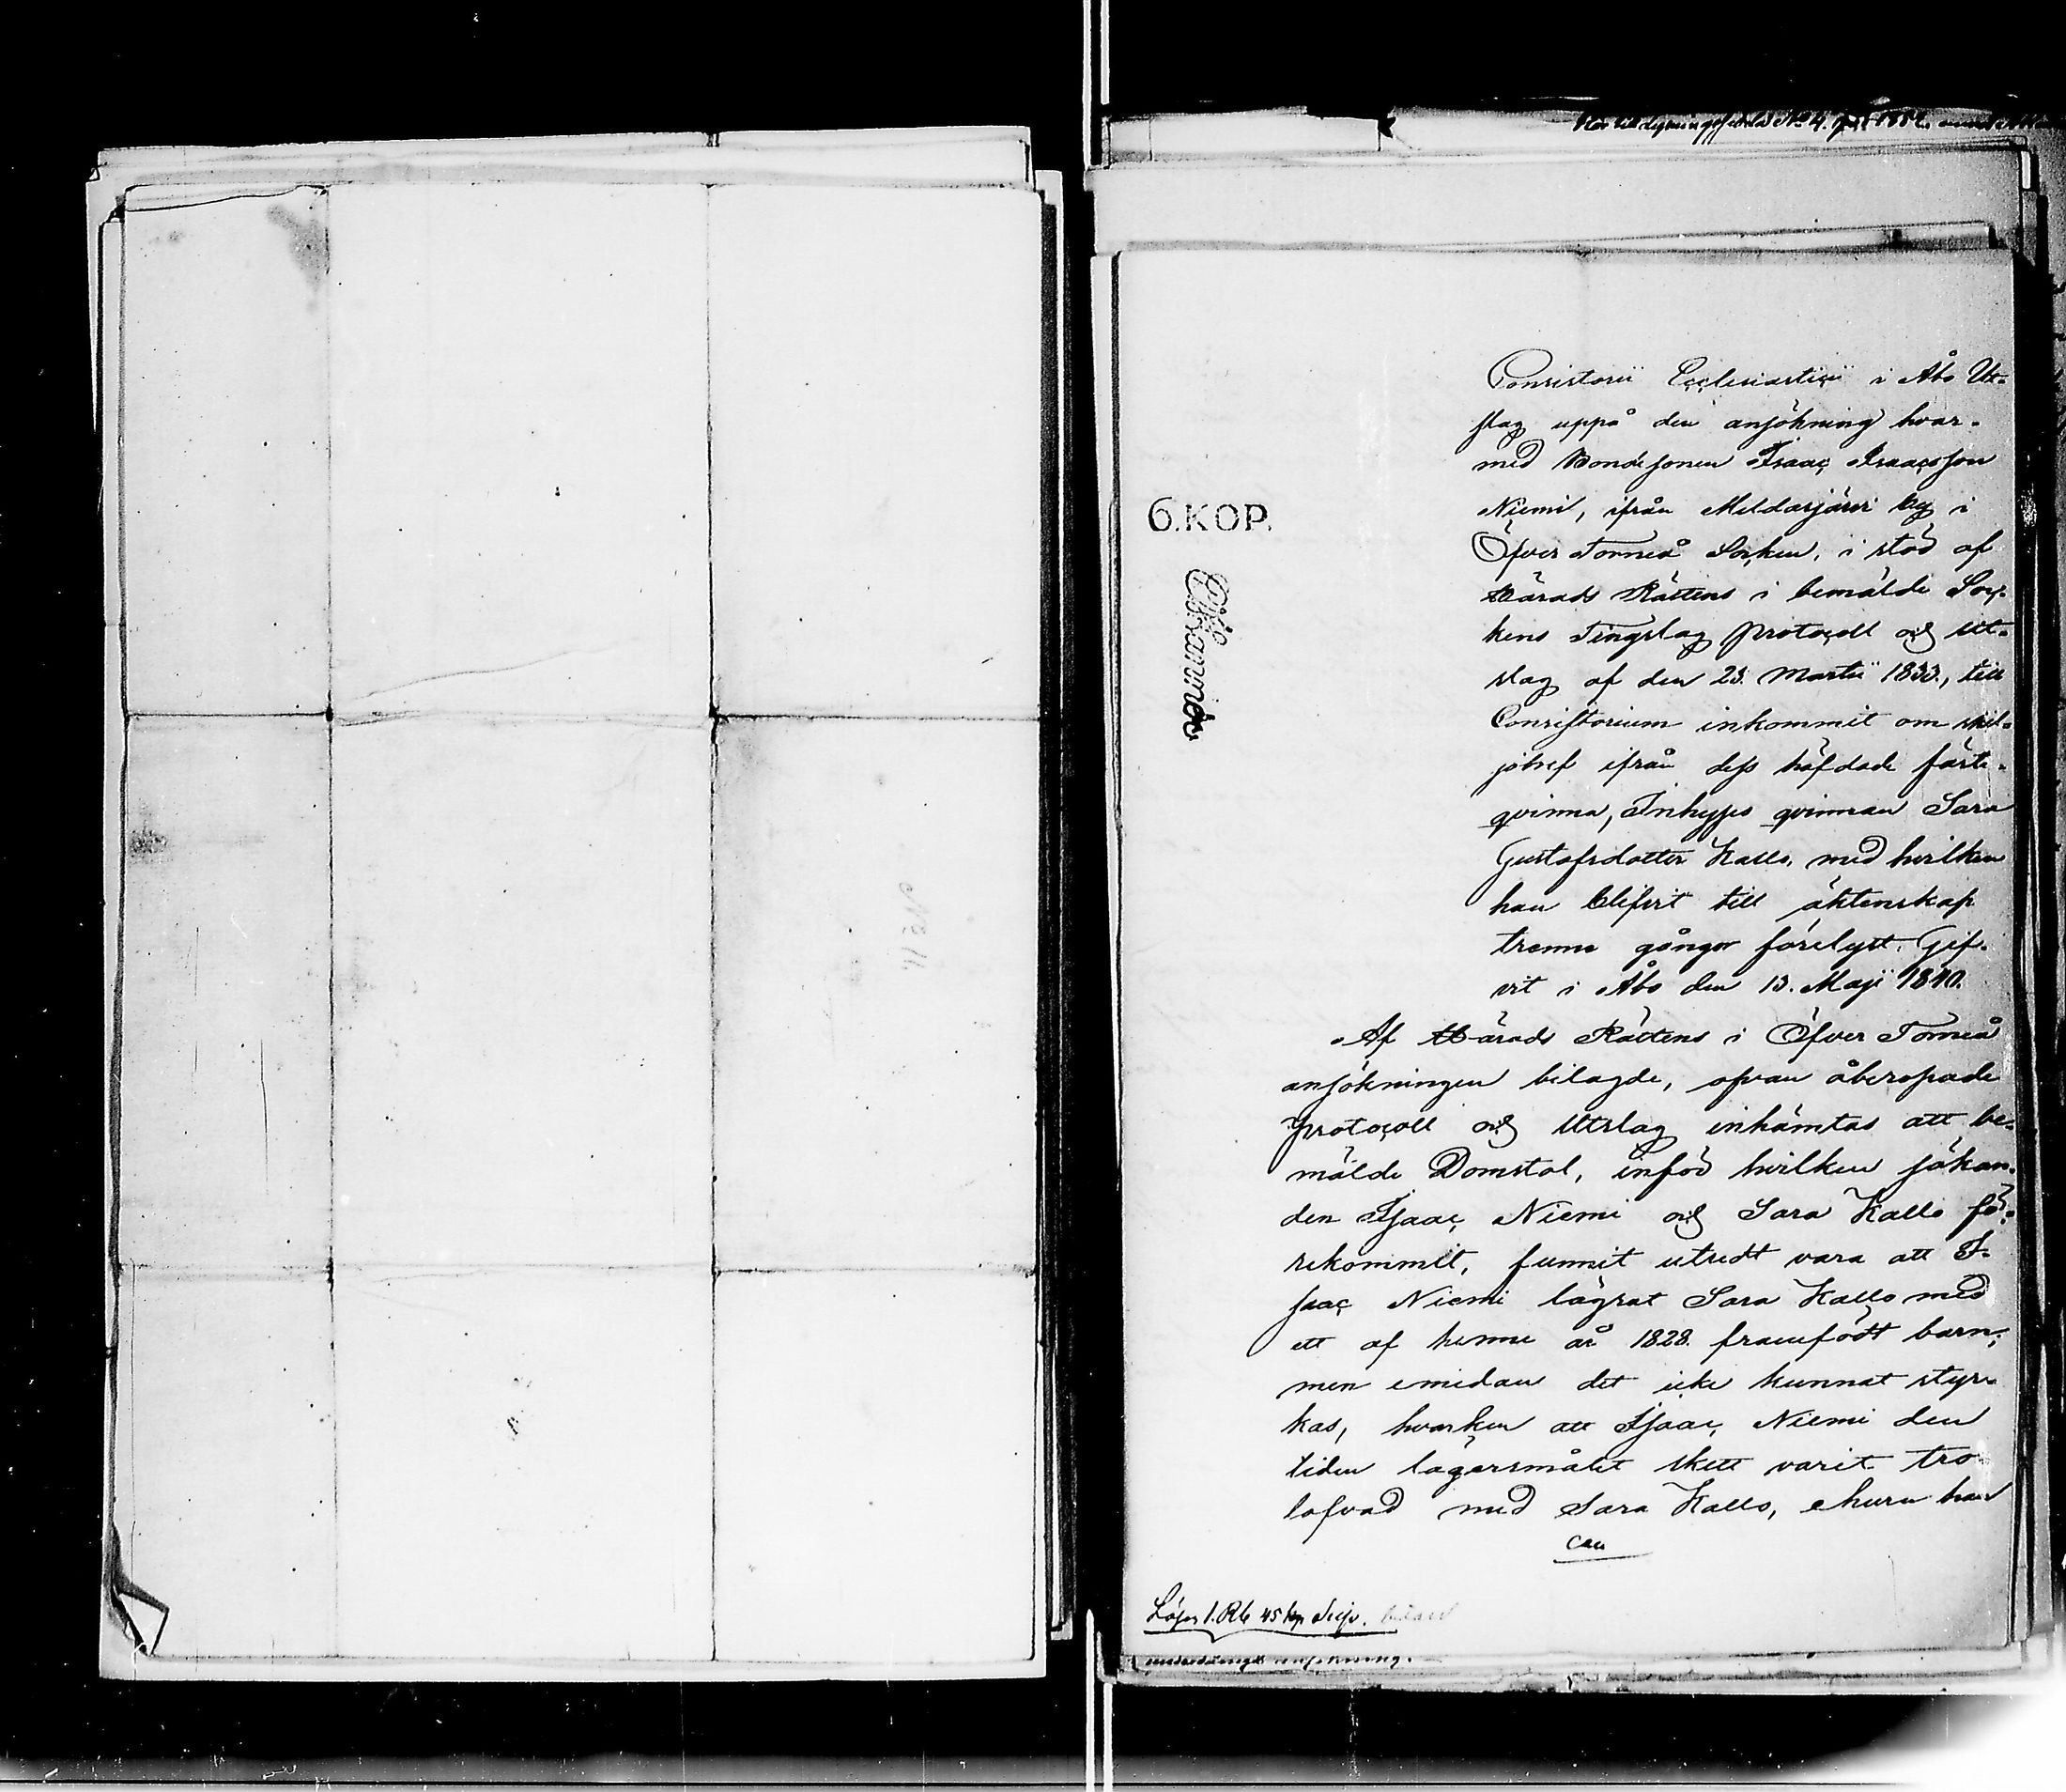 6.KOP.
Consistorii Ecclesiastici i Åbo Ut-
slag uppå den ansökning hvar-
med Bondesonen Isaac Isaacsson
Niemi, ifrån Meldosjärvi by i
Öfver Torneå Socken, i stöd af
Härads Rättens i bemälde Soc-
kens Tingslag Protocoll och Ut-
slag af den 23. Martii 1833., till
Consistorium inkommit om skil-
jobref ifrån dess häfdade fäste-
qvinna, Inhyses qvinnan Sara
Gustafsdotter Kallo, med hvilken
han blifvit till äktenskap
trenne gånger förelyst. Gif-
vit i Åbo den 13. Maji 1840.
Af Härads Rättens i Öfver Torneå
ansökningen bilagde, ofvan åberopade
Protocoll och Utslag inhämtas att be-
mälde Domstol, inför hvilken sökan-
den Isaac Niemi och Sara Kallo fö-
rekommit, funnit utredt vara att I-
saac Niemi lägrat Sara Kallo med
ett af henne år 1828. framfödt barn;
men emedan det icke kunnat styr-
kas, hvarken att Isaac Niemi den
tiden lägersmålet skett varit tro-
lofvad med Sara Kallo, ehuru han
Löser 1. Rb 45 kop Silfv.
ansökning.